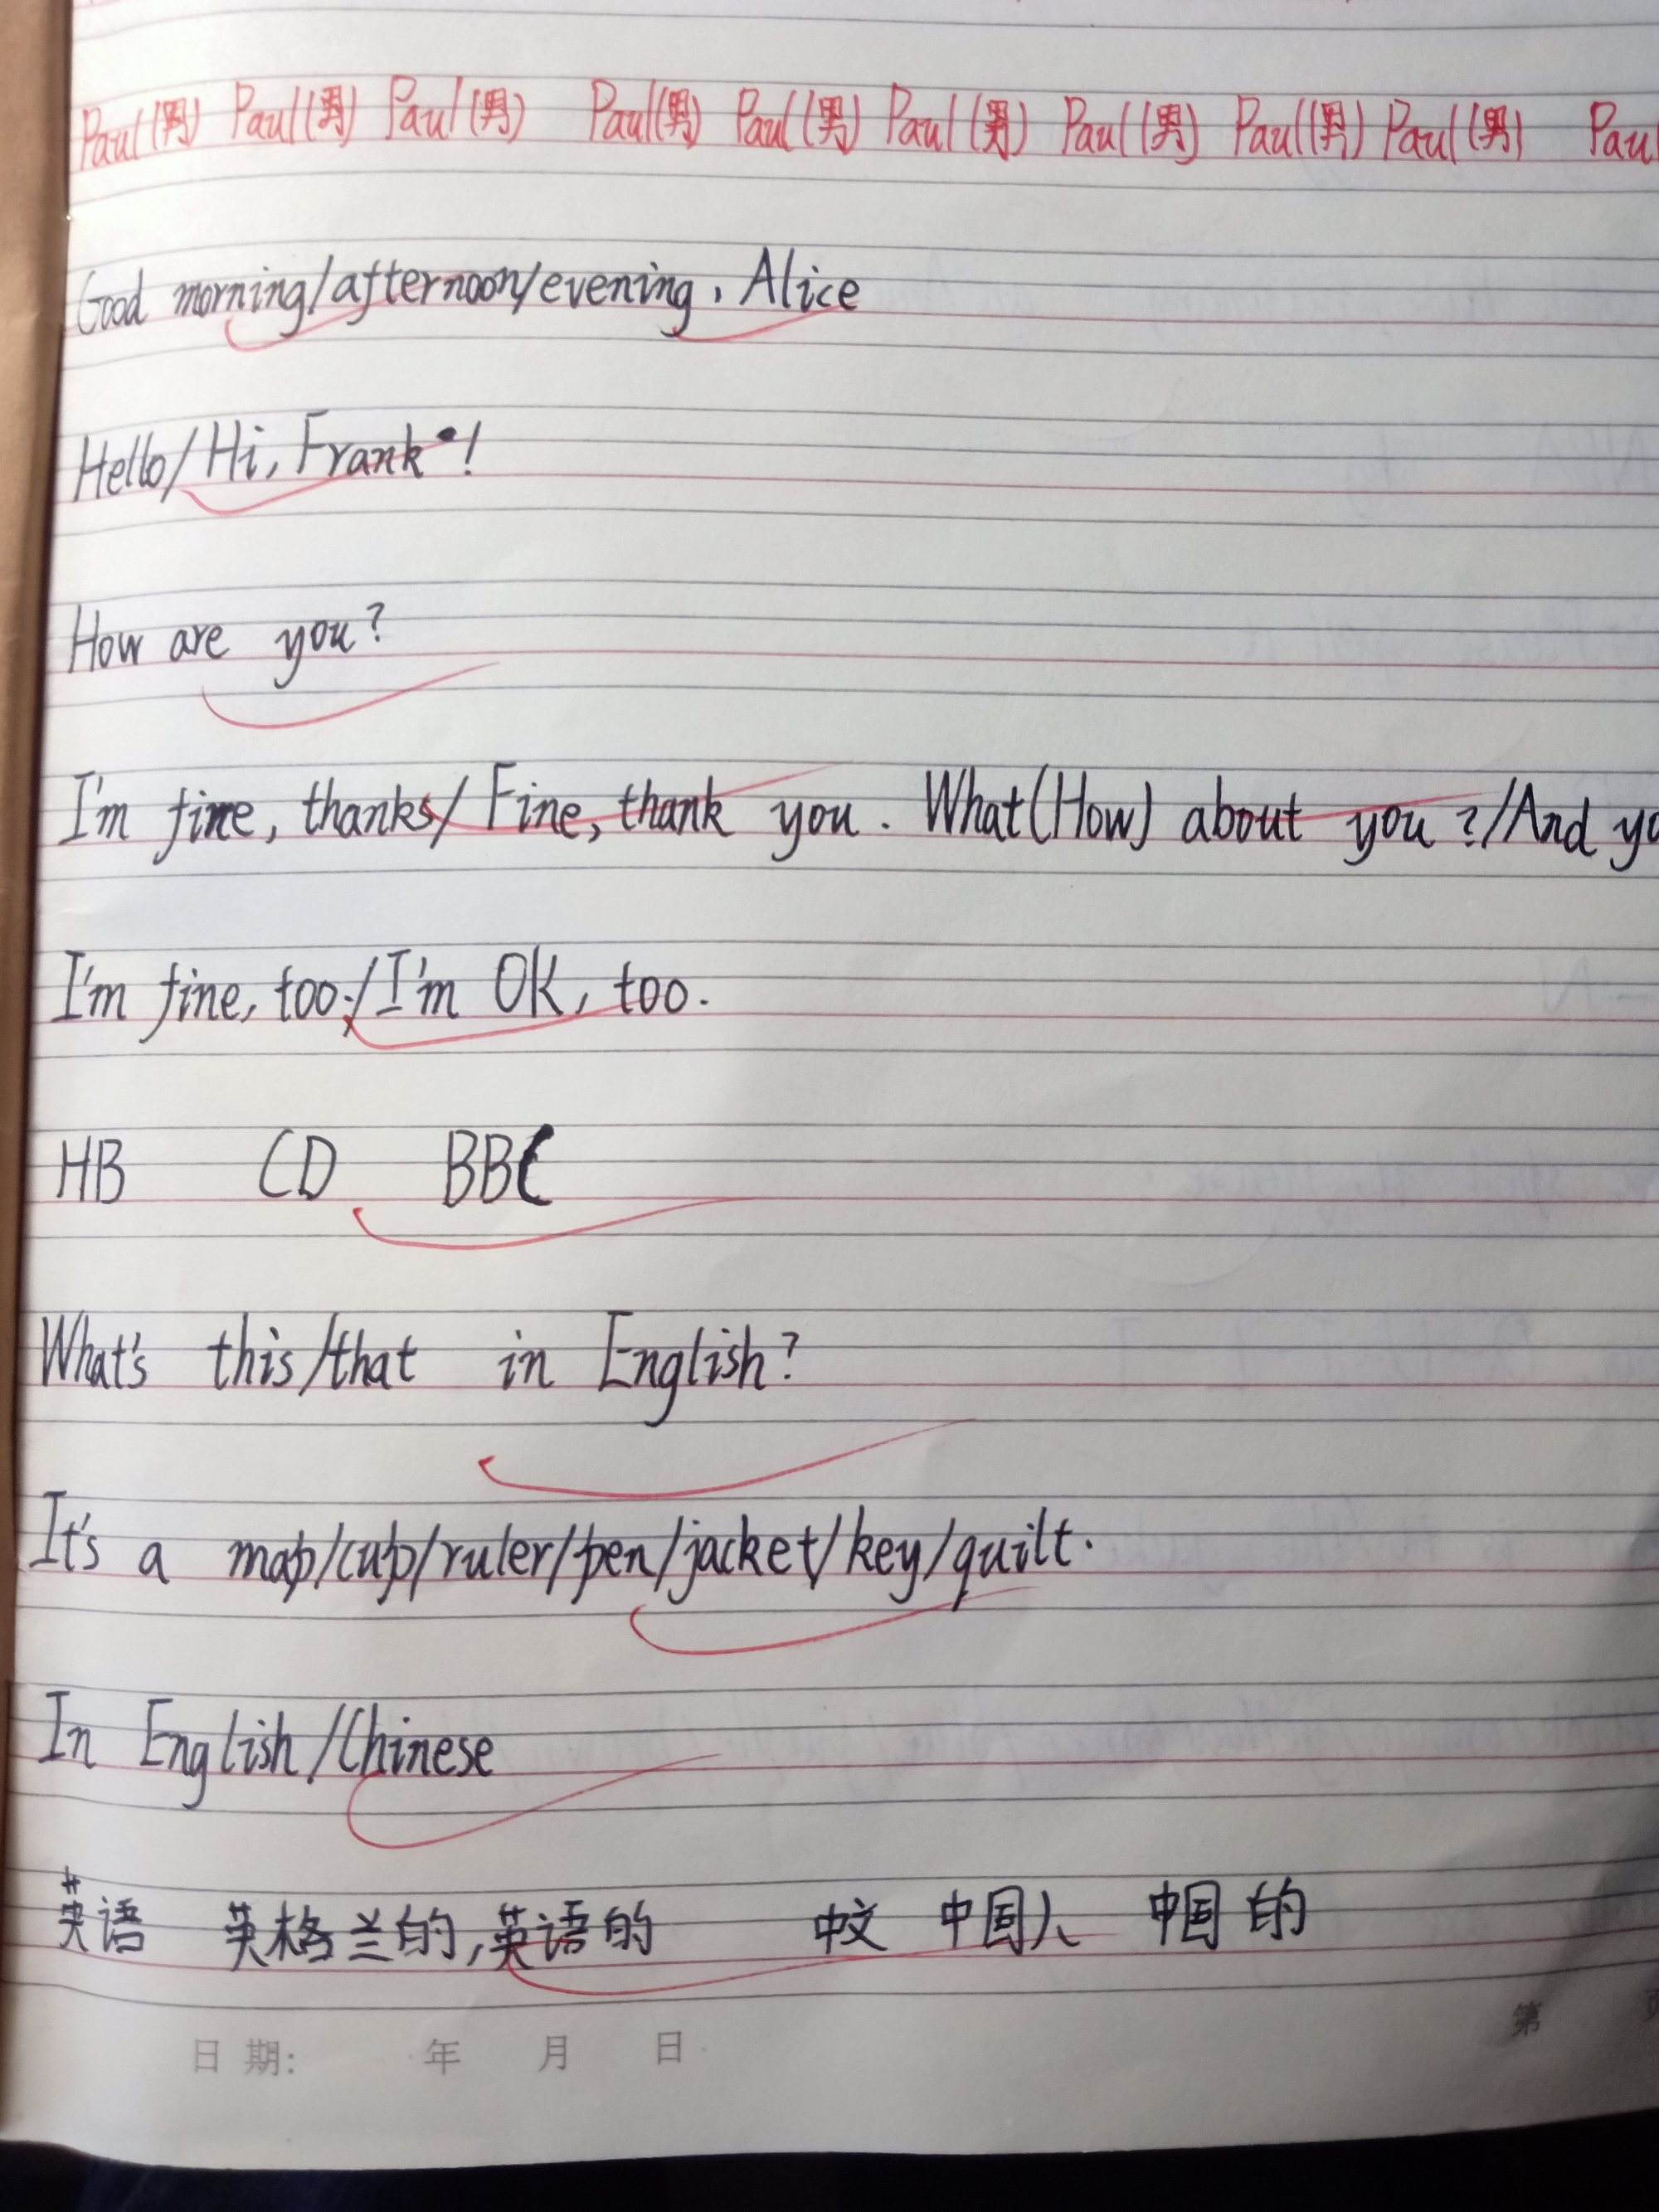 Paul(男) Paul(男) Paul(男) Paul(男) Paul(男) Paul(男) Paul(男) Paul(男) Paul(男) Paul
Good morning/afternoon/evening, Alice
Hello/Hi, Frank!
How are you?
I'm fine, thanks/ Fine, thank you. What(How) about you?/And yo
I'm fine, too./I'm OK, too.
HB CD BBC
What's this/that in English?
It's a map/cup/ruler/pen/jacket/key/quilt.
In English/Chinese
英语 英格兰的,英语的 中文 中国人 中国的
日期: 年 月 日 第